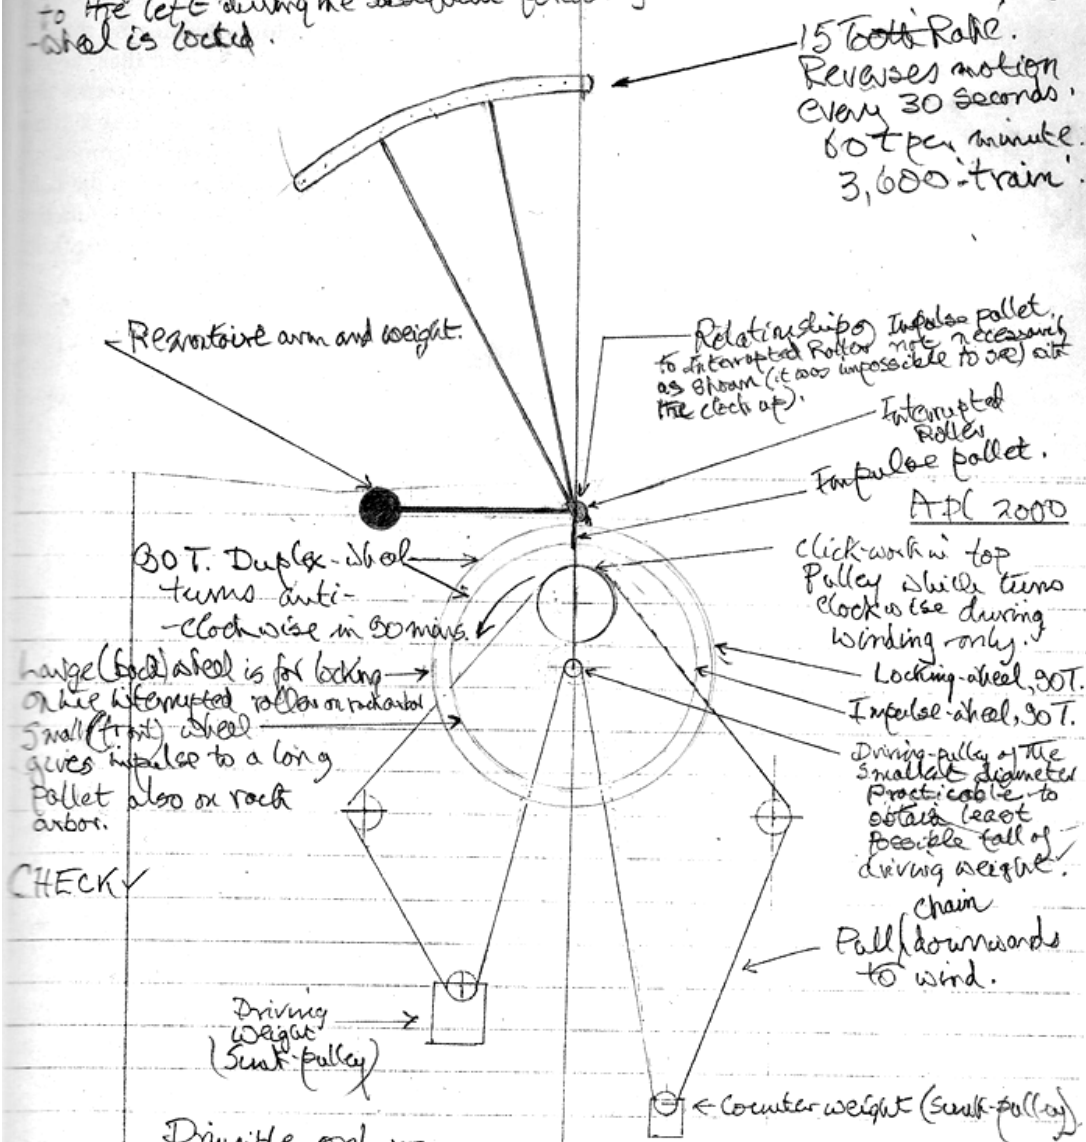 to the left during the
-wheel is locked.
15 Tooth Rake.
Reverses motion
every 30 seconds.
60t per minute.
3,600 'train'.
Remontoire arm and weight.
Relationship of Impulse pallet
to Interrupted Roller not necessarily
as shown (it was impossible to see) with
the clock up).
Interrupted
Roller
Impulse pallet.
APC 2000
90T. Duplex-wheel
turns anti-
-clockwise in 90 mins.
click-work in top
Pulley which turns
clockwise during
winding only.
Large (back) wheel is for locking
on the interrupted roller on rack arbor
Small (front) wheel
gives impulse to a long
pallet also on rack
arbor.
Locking-wheel, 90T.
Impulse-wheel, 90T.
Driving-pulley of the
smallest diameter
practicable to
obtain least
possible fall of
driving weight.
CHECK ✓
chain
Pull downwards
to wind.
Driving
weight
(Sunk-pulley)
Counter weight (Sunk-pulley)